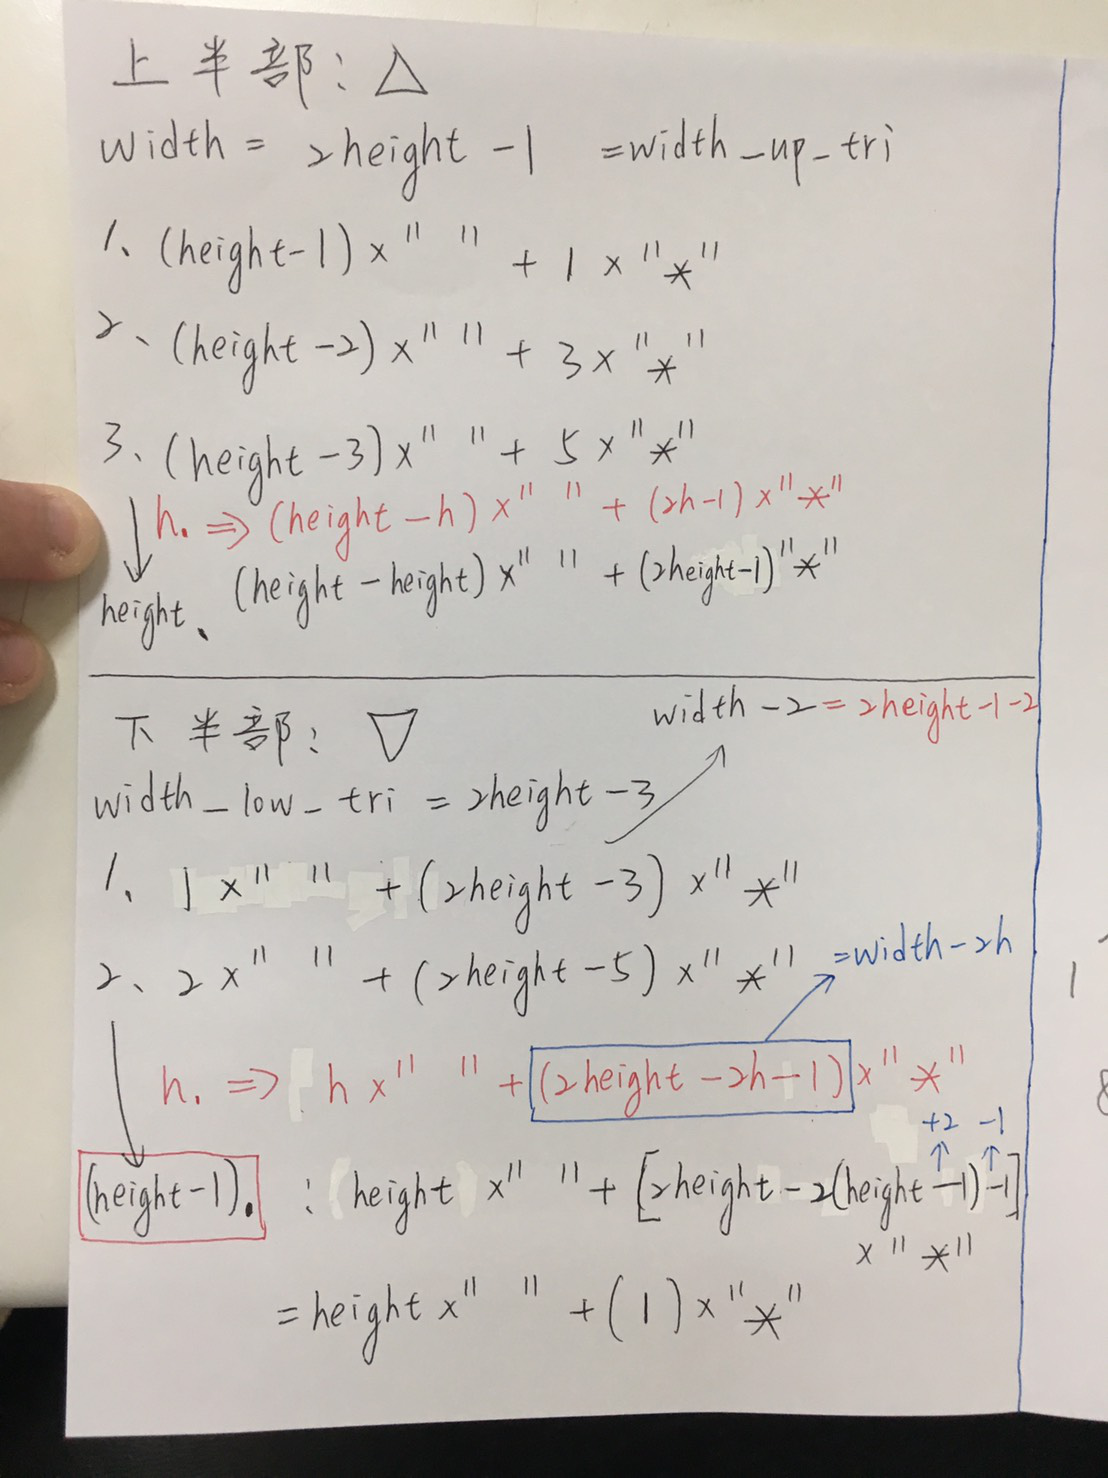 上半部：△
width = 2height -1 =width_up_tri
1、(height-1)x" " + 1 x "*"
2、(height-2)x" " + 3x"*"
3、(height-3)x" " + 5x"*"
h. ⇒ (height-h)x" " + (2h-1)x"*"
height、(height-height)x" " + (2height-1)"*"
下半部：▽
width-2=2height-1-2
width_low_tri = 2height-3
1、1x" " + (2height-3)x"*"
2、2x" " + (2height-5)x"*"
=width-2h
h. ⇒ h x" " + (2height-2h-1)x"*"
+2 -1
(height-1). : height x" " + [2height-2(height-1)-1]
x"*"
=height x" " + (1)x"*"
1